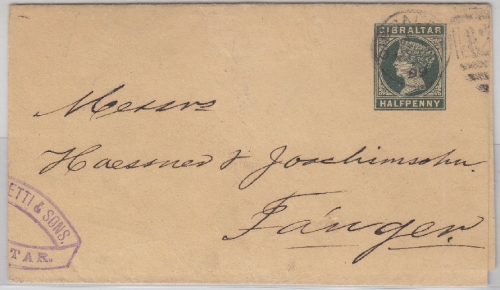 GIBRALTAR
HALFPENNY
Messrs
Haessner & Joachimsohn.
Tánger.
ETTI & SONS.
TAR.